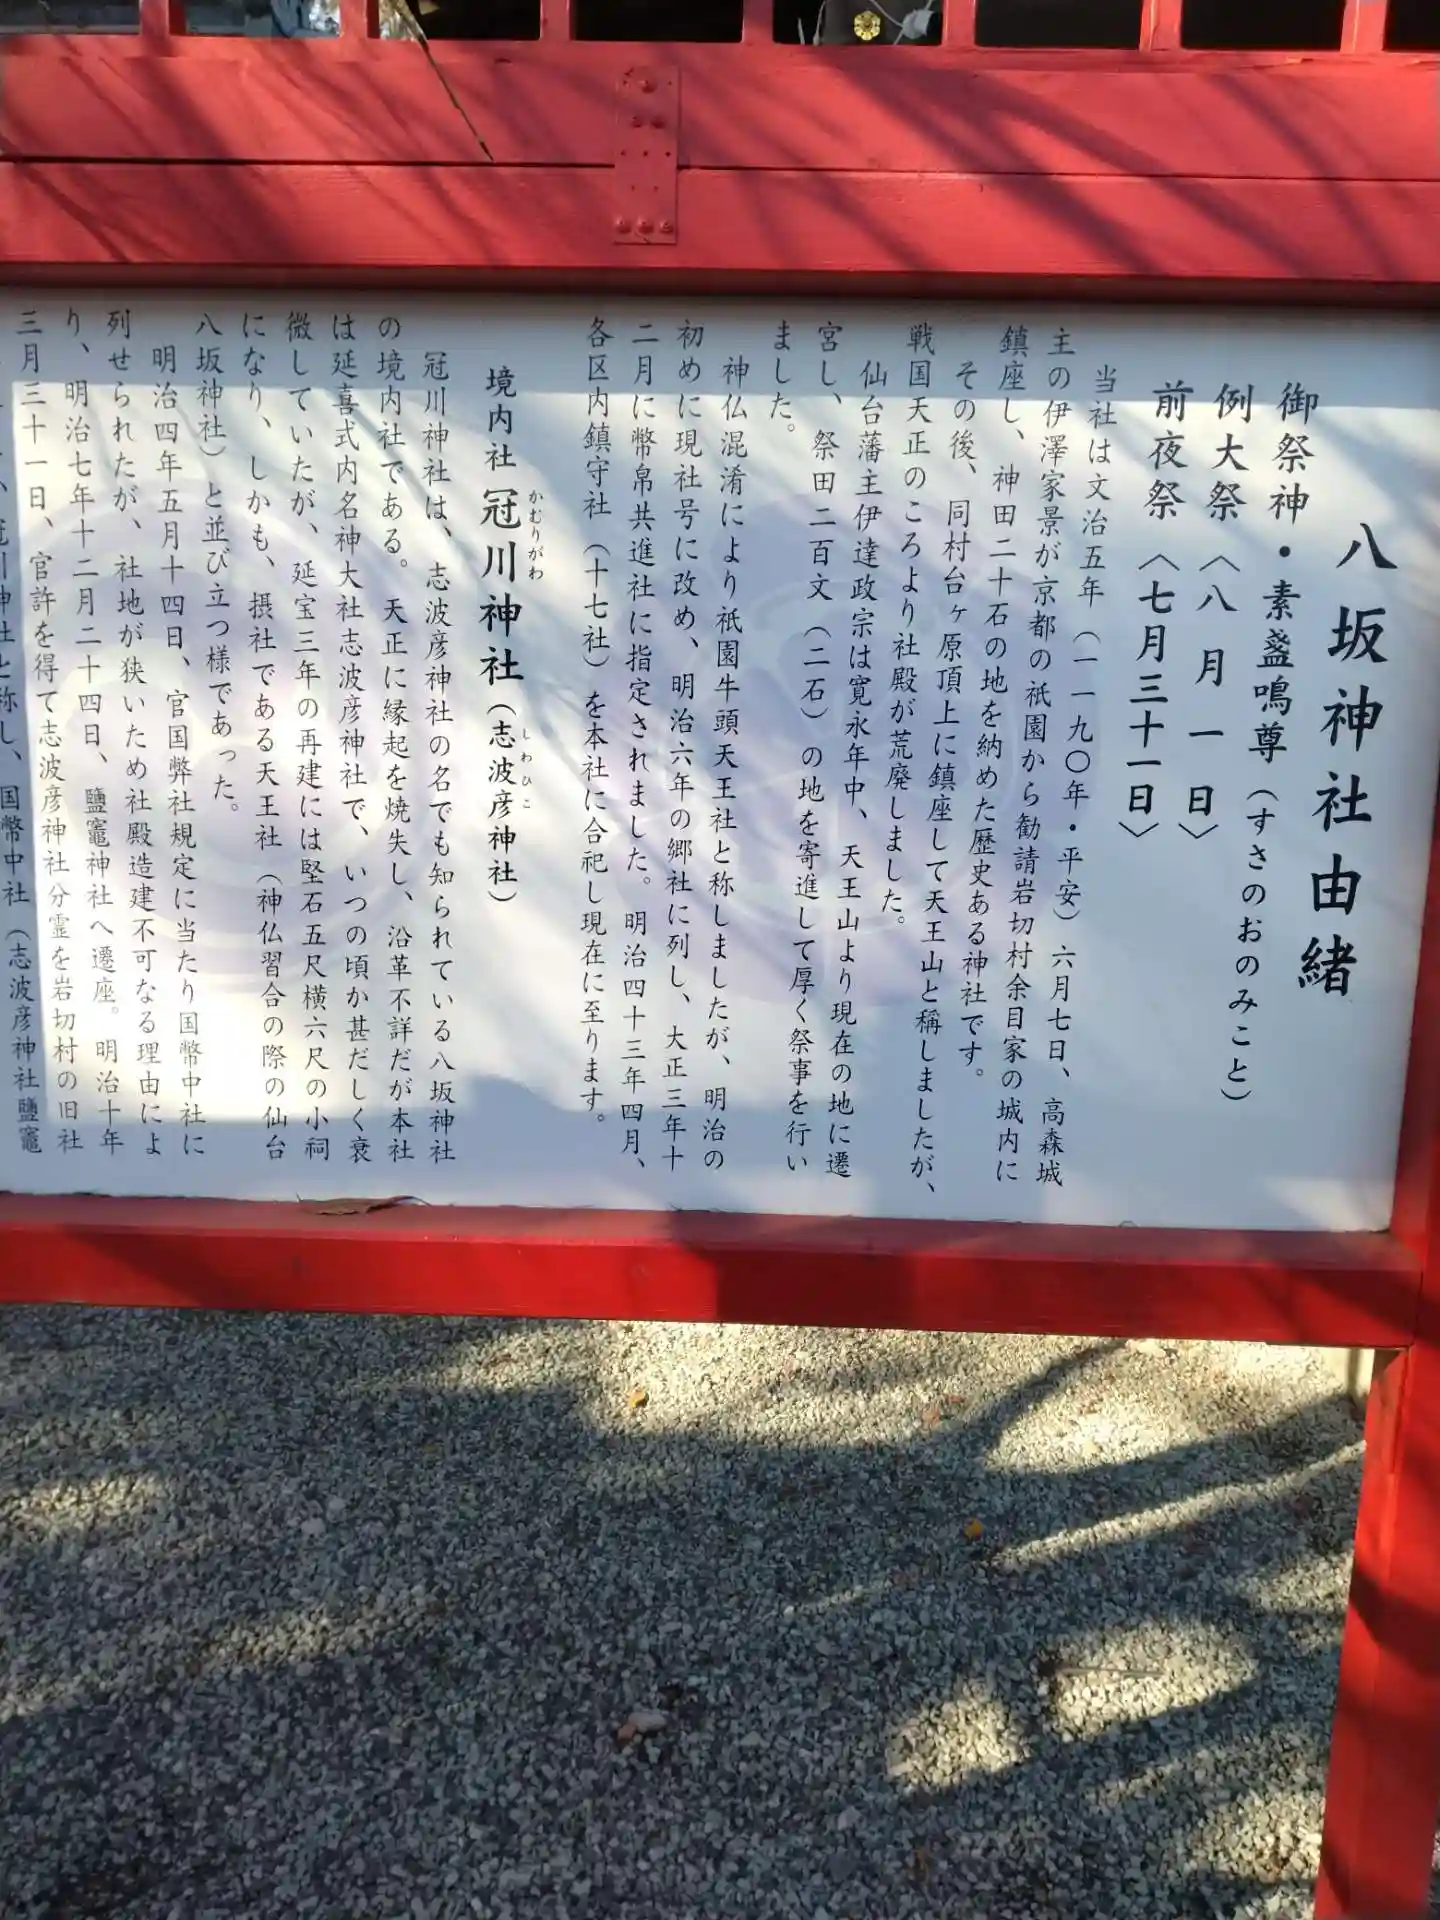 八坂神社由緒
御祭神・素盞鳴尊（すさのおのみこと）
例大祭〈八月一日〉
前夜祭〈七月三十一日〉
当社は文治五年（一一九〇年・平安）六月七日、高森城
主の伊澤家景が京都の祇園から勧請岩切村余目家の城内に
鎮座し、神田二十石の地を納めた歴史ある神社です。
その後、同村台ヶ原頂上に鎮座して天王山と稱しましたが、
戦国天正のころより社殿が荒廃しました。
仙台藩主伊達政宗は寛永年中、天王山より現在の地に遷
宮し、祭田二百文（二石）の地を寄進して厚く祭事を行い
ました。
神仏混淆により祇園牛頭天王社と称しましたが、明治の
初めに現社号に改め、明治六年の郷社に列し、大正三年十
二月に幣帛共進社に指定されました。明治四十三年四月、
各区内鎮守社（十七社）を本社に合祀し現在に至ります。
境内社 冠川神社（志波彦神社）
かむりがわ しわひこ
冠川神社は、志波彦神社の名でも知られている八坂神社
の境内社である。天正に縁起を焼失し、沿革不詳だが本社
は延喜式内名神大社志波彦神社で、いつの頃か甚だしく衰
微していたが、延宝三年の再建には堅石五尺横六尺の小祠
になり、しかも、摂社である天王社（神仏習合の際の仙台
八坂神社）と並び立つ様であった。
明治四年五月十四日、官国弊社規定に当たり国幣中社に
列せられたが、社地が狭いため社殿造建不可なる理由によ
り、明治七年十二月二十四日、鹽竈神社へ遷座。明治十年
三月三十一日、官許を得て志波彦神社分霊を岩切村の旧社
冠川神社と称し、国幣中社（志波彦神社鹽竈